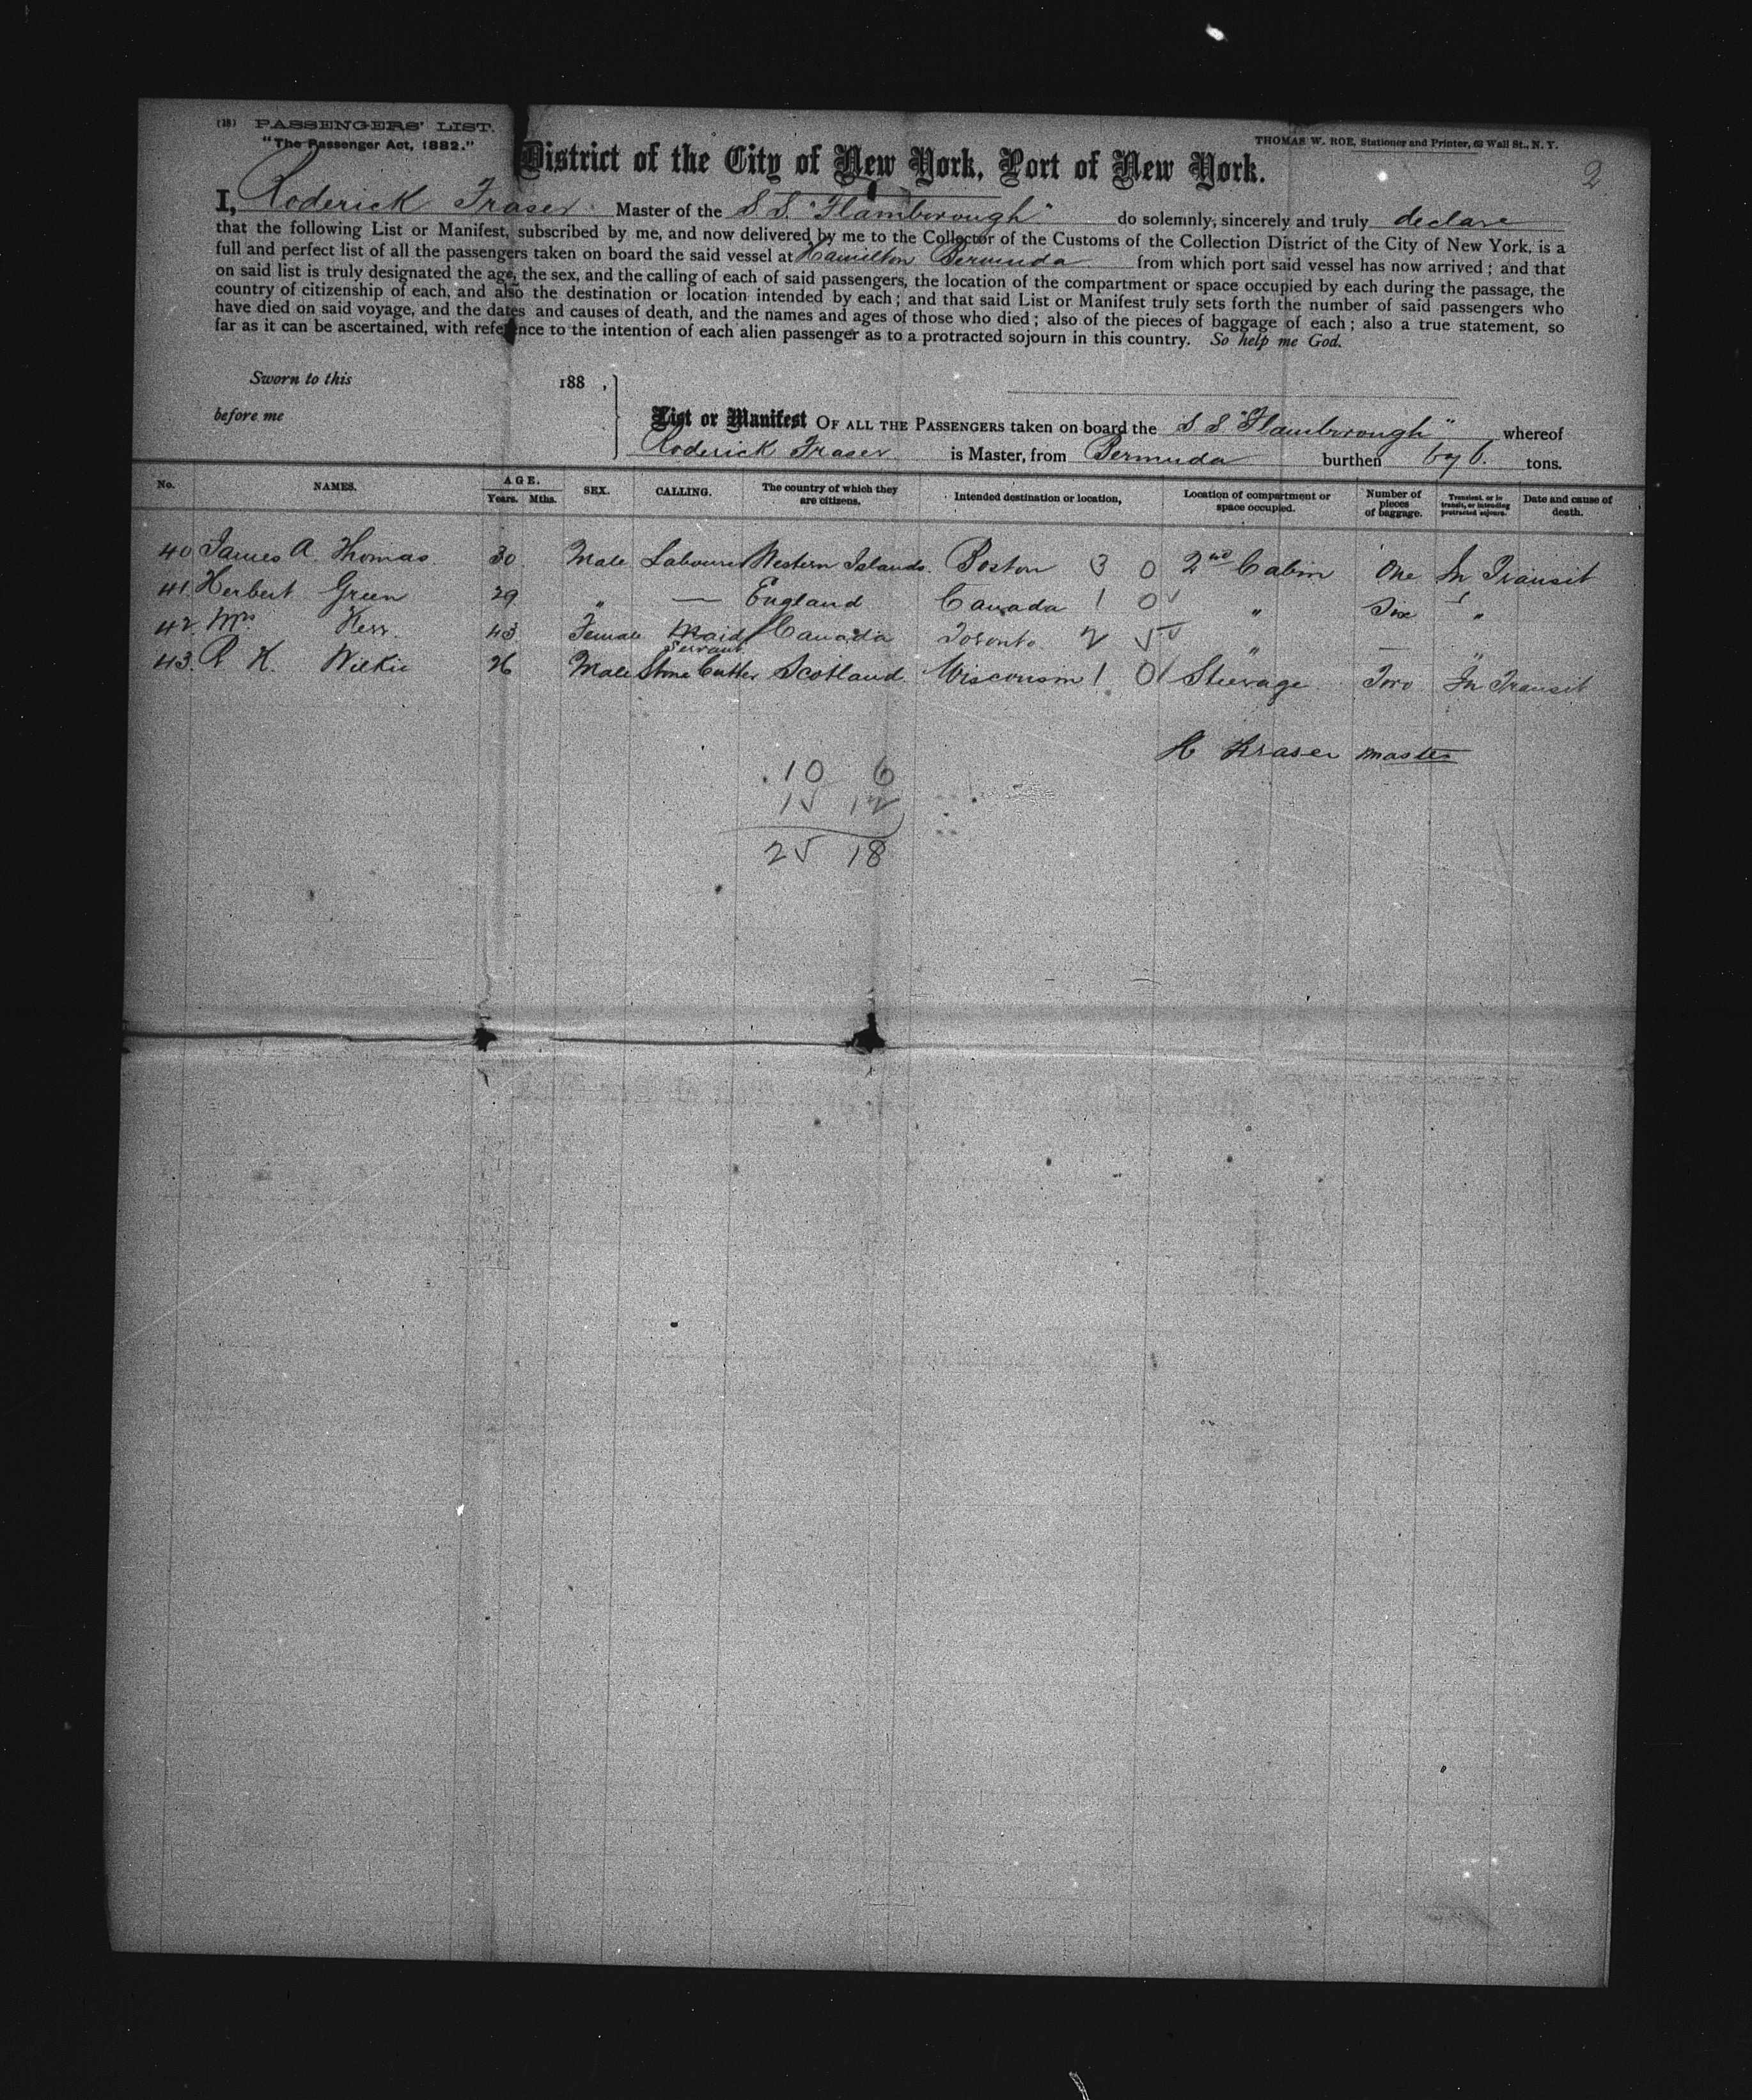 (18) PASSENGERS' LIST.
"The Passenger Act, 1882."
THOMAS W. ROE, Stationer and Printer, 62 Wall St., N. Y.
2
District of the City of New York, Port of New York.
I, Roderick Fraser Master of the S.S. "Flamborough" do solemnly, sincerely and truly declare
that the following List or Manifest, subscribed by me, and now delivered by me to the Collector of the Customs of the Collection District of the City of New York, is a
full and perfect list of all the passengers taken on board the said vessel at Hamilton Bermuda from which port said vessel has now arrived; and that
on said list is truly designated the age, the sex, and the calling of each of said passengers, the location of the compartment or space occupied by each during the passage, the
country of citizenship of each, and also the destination or location intended by each; and that said List or Manifest truly sets forth the number of said passengers who
have died on said voyage, and the dates and causes of death, and the names and ages of those who died; also of the pieces of baggage of each; also a true statement, so
far as it can be ascertained, with reference to the intention of each alien passenger as to a protracted sojourn in this country. So help me God.
Sworn to this 188 ,
before me
List or Manifest OF ALL THE PASSENGERS taken on board the S S "Flamborough" whereof
Roderick Fraser is Master, from Bermuda burthen tons.
No. NAMES. AGE. Years. Mths. SEX. CALLING. The country of which they are citizens. Intended destination or location, Location of compartment or space occupied. Number of pieces of baggage. Transient, or in transit, or intending protracted sojourn. Date and cause of death.
40 James A. Thomas. 30. Male Labourer Western Islands. Boston 3 0 2nd Cabin One In Transit
41 Herbert Green 29 " — England Canada 1 0 " Six "
42. Mrs Kerr. 43 Female Maid Servant Canada Toronto 2 5 " — "
43. R K. Wilkie 26 Male Stone Cutter Scotland. Wisconsin 1 0 Steerage Two In Transit
Fraser master
10 6
15 12
25 18